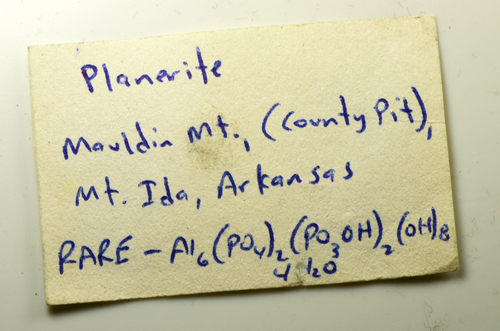 Planerite
Mauldin Mt., (County Pit),
Mt. Ida, Arkansas
RARE - Al6(PO4)2(PO3OH)2(OH)8
4 H2O